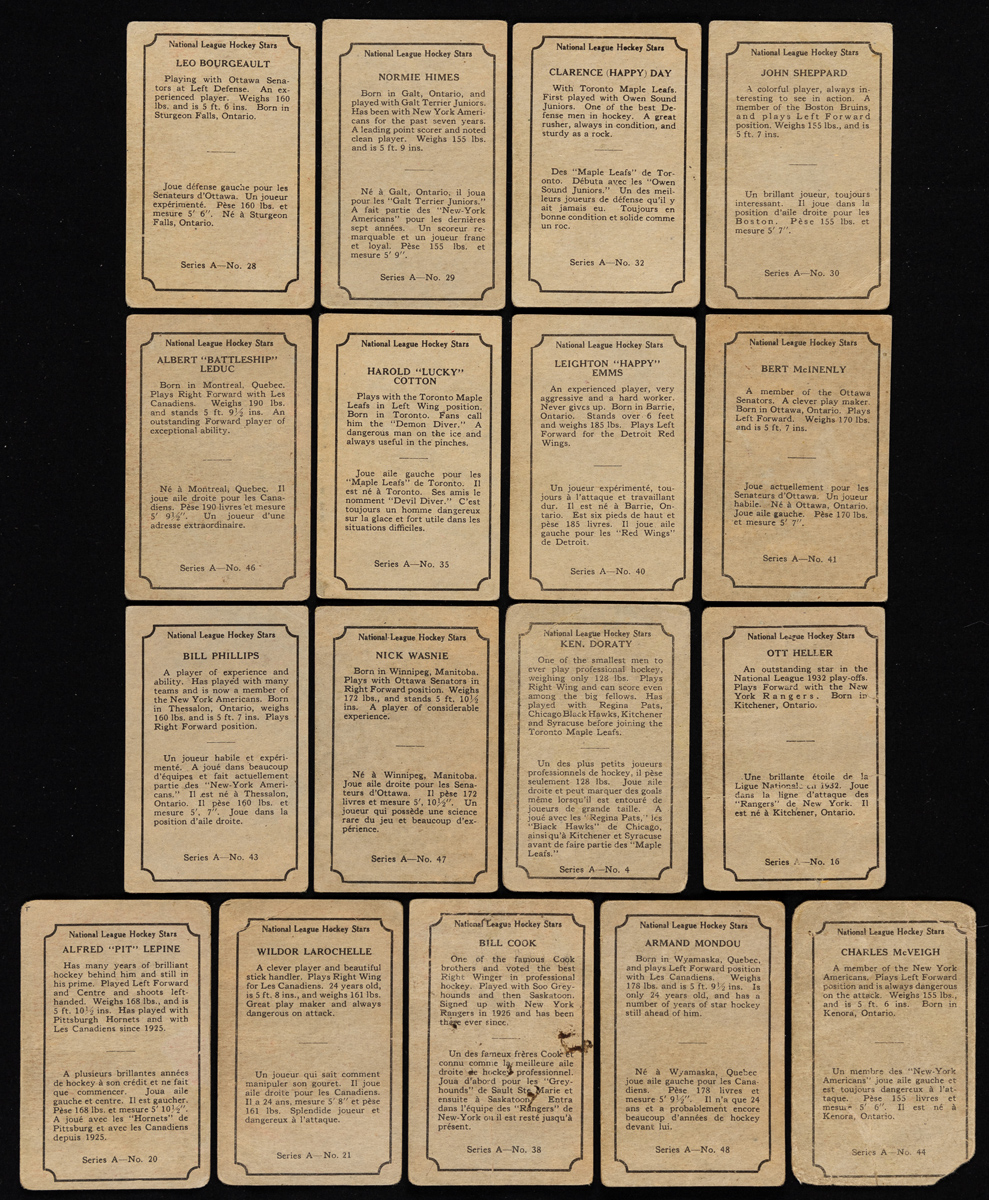 National League Hockey Stars
LEO BOURGEAULT
Playing with Ottawa Sena-
tors at Left Defense. An ex-
perienced player. Weighs 160
lbs. and is 5 ft. 6 ins. Born in
Sturgeon Falls, Ontario.
Joue défense gauche pour les
Senateurs d'Ottawa. Un joueur
expérimenté. Pèse 160 lbs. et
mesure 5' 6". Né à Sturgeon
Falls, Ontario.
Series A—No. 28
National League Hockey Stars
NORMIE HIMES
Born in Galt, Ontario, and
played with Galt Terrier Juniors.
Has been with New York Ameri-
cans for the past seven years.
A leading point scorer and noted
clean player. Weighs 155 lbs.
and is 5 ft. 9 ins.
Né à Galt, Ontario, il joua
pour les "Galt Terrier Juniors."
A fait partie des "New-York
Americans" pour les dernières
sept années. Un scoreur re-
marquable et un joueur franc
et loyal. Pèse 155 lbs. et
mesure 5' 9".
Series A—No. 29
National League Hockey Stars
CLARENCE (HAPPY) DAY
With Toronto Maple Leafs.
First played with Owen Sound
Juniors. One of the best De-
fense men in hockey. A great
rusher, always in condition, and
sturdy as a rock.
Des "Maple Leafs" de Tor-
onto. Débuta avec les "Owen
Sound Juniors." Un des meil-
leurs joueurs de défense qu'il y
ait jamais eu. Toujours en
bonne condition et solide comme
un roc.
Series A—No. 32
National League Hockey Stars
JOHN SHEPPARD
A colorful player, always in-
teresting to see in action. A
member of the Boston Bruins,
and plays Left Forward
position. Weighs 155 lbs., and is
5 ft. 7 ins.
Un brillant joueur, toujours
interessant. Il joue dans la
position d'aile droite pour les
Boston. Pèse 155 lbs. et
mesure 5' 7".
Series A—No. 30
National League Hockey Stars
ALBERT "BATTLESHIP"
LEDUC
Born in Montreal, Quebec.
Plays Right Forward with Les
Canadiens. Weighs 190 lbs.
and stands 5 ft. 9½ ins. An
outstanding Forward player of
exceptional ability.
Né à Montreal, Quebec. Il
joue aile droite pour les Cana-
diens. Pèse 190 livres et mesure
5' 9½". Un joueur d'une
adresse extraordinaire.
Series A—No. 46
National League Hockey Stars
HAROLD "LUCKY"
COTTON
Plays with the Toronto Maple
Leafs in Left Wing position.
Born in Toronto. Fans call
him the "Demon Diver." A
dangerous man on the ice and
always useful in the pinches.
Joue aile gauche pour les
"Maple Leafs" de Toronto. Il
est né à Toronto. Ses amis le
nomment "Devil Diver." C'est
toujours un homme dangereux
sur la glace et fort utile dans les
situations difficiles.
Series A—No. 35
National League Hockey Stars
LEIGHTON "HAPPY"
EMMS
An experienced player, very
aggressive and a hard worker.
Never gives up. Born in Barrie,
Ontario. Stands over 6 feet
and weighs 185 lbs. Plays Left
Forward for the Detroit Red
Wings.
Un joueur expérimenté, tou-
jours à l'attaque et travaillant
dur. Il est né à Barrie, On-
tario. Est six pieds de haut et
pèse 185 livres. Il joue aile
gauche pour les "Red Wings"
de Detroit.
Series A—No. 40
National League Hockey Stars
BERT McINENLY
A member of the Ottawa
Senators. A clever play maker.
Born in Ottawa, Ontario. Plays
Left Forward. Weighs 170 lbs.
and is 5 ft. 7 ins.
Joue actuellement pour les
Senateurs d'Ottawa. Un joueur
habile. Né à Ottawa, Ontario.
Joue aile gauche. Pèse 170 lbs.
et mesure 5' 7".
Series A—No. 41
National League Hockey Stars
BILL PHILLIPS
A player of experience and
ability. Has played with many
teams and is now a member of
the New York Americans. Born
in Thessalon, Ontario, weighs
160 lbs. and is 5 ft. 7 ins. Plays
Right Forward position.
Un joueur habile et expéri-
menté. A joué dans beaucoup
d'équipes et fait actuellement
partie des "New-York Ameri-
cans." Il est né à Thessalon,
Ontario. Il pèse 160 lbs. et
mesure 5', 7". Joue dans la
position d'aile droite.
Series A—No. 43
National League Hockey Stars
NICK WASNIE
Born in Winnipeg, Manitoba.
Plays with Ottawa Senators in
Right Forward position. Weighs
172 lbs., and stands 5 ft. 10½
ins. A player of considerable
experience.
Né à Winnipeg, Manitoba.
Joue aile droite pour les Sena-
teurs d'Ottawa. Il pèse 172
livres et mesure 5', 10½". Un
joueur qui possède une science
rare du jeu et beaucoup d'ex-
périence.
Series A—No. 47
National League Hockey Stars
KEN. DORATY
One of the smallest men to
ever play professional hockey,
weighing only 128 lbs. Plays
Right Wing and can score even
among the big fellows. Has
played with Regina Pats,
Chicago Black Hawks, Kitchener
and Syracuse before joining the
Toronto Maple Leafs.
Un des plus petits joueurs
professionnels de hockey, il pèse
seulement 128 lbs. Joue aile
droite et peut marquer des goals
même lorsqu'il est entouré de
joueurs de grande taille. A
joué avec les "Regina Pats," les
"Black Hawks" de Chicago,
ainsi qu'à Kitchener et Syracuse
avant de faire partie des "Maple
Leafs."
Series A—No. 4
National League Hockey Stars
OTT HELLER
An outstanding star in the
National League 1932 play-offs.
Plays Forward with the New
York Rangers. Born in
Kitchener, Ontario.
Une brillante étoile de la
Ligue Nationale en 1932. Joue
dans la ligne d'attaque des
"Rangers" de New York. Il
est né à Kitchener, Ontario.
Series A—No. 16
National League Hockey Stars
ALFRED "PIT" LEPINE
Has many years of brilliant
hockey behind him and still in
his prime. Played Left Forward
and Centre and shoots left-
handed. Weighs 168 lbs., and is
5 ft. 10½ ins. Has played with
Pittsburgh Hornets and with
Les Canadiens since 1925.
A plusieurs brillantes années
de hockey à son crédit et ne fait
que commencer. Joua aile
gauche et centre. Il est gaucher.
Pèse 168 lbs. et mesure 5' 10½".
A joué avec les "Hornets" de
Pittsburg et avec les Canadiens
depuis 1925.
Series A—No. 20
National League Hockey Stars
WILDOR LAROCHELLE
A clever player and beautiful
stick handler. Plays Right Wing
for Les Canadiens. 24 years old,
is 5 ft. 8 ins., and weighs 161 lbs.
Great play maker and always
dangerous on attack.
Un joueur qui sait comment
manipuler son gouret. Il joue
aile droite pour les Canadiens.
Il a 24 ans, mesure 5' 8" et pèse
161 lbs. Splendide joueur et
dangereux à l'attaque.
Series A—No. 21
National League Hockey Stars
BILL COOK
One of the famous Cook
brothers and voted the best
Right Winger in professional
hockey. Played with Soo Grey-
hounds and then Saskatoon.
Signed up with New York
Rangers in 1926 and has been
there ever since.
Un des fameux frères Cook et
connu comme la meilleure aile
droite de hockey professionnel.
Joua d'abord pour les "Grey-
hounds" de Sault Ste. Marie et
ensuite à Saskatoon. Entra
dans l'équipe des "Rangers" de
New-York ou il est resté jusqu'à
présent.
Series A—No. 38
National League Hockey Stars
ARMAND MONDOU
Born in Wyamaska, Quebec,
and plays Left Forward position
with Les Canadiens. Weighs
178 lbs. and is 5 ft. 9½ ins. Is
only 24 years old, and has a
number of years of star hockey
still ahead of him.
Né à Wyamaska, Quebec
joue aile gauche pour les Cana-
diens. Pèse 178 livres et
mesure 5' 9½". Il n'a que 24
ans et a probablement encore
beaucoup d'années de hockey
devant lui.
Series A—No. 48
National League Hockey Stars
CHARLES McVEIGH
A member of the New York
Americans. Plays Left Forward
position and is always dangerous
on the attack. Weighs 155 lbs.,
and is 5 ft. 6 ins. Born in
Kenora, Ontario.
Un membre des "New-York
Americans" joue aile gauche et
est toujours dangereux à l'at-
taque. Pèse 155 livres et
mesure 5' 6". Il est né à
Kenora, Ontario.
Series A—No. 44